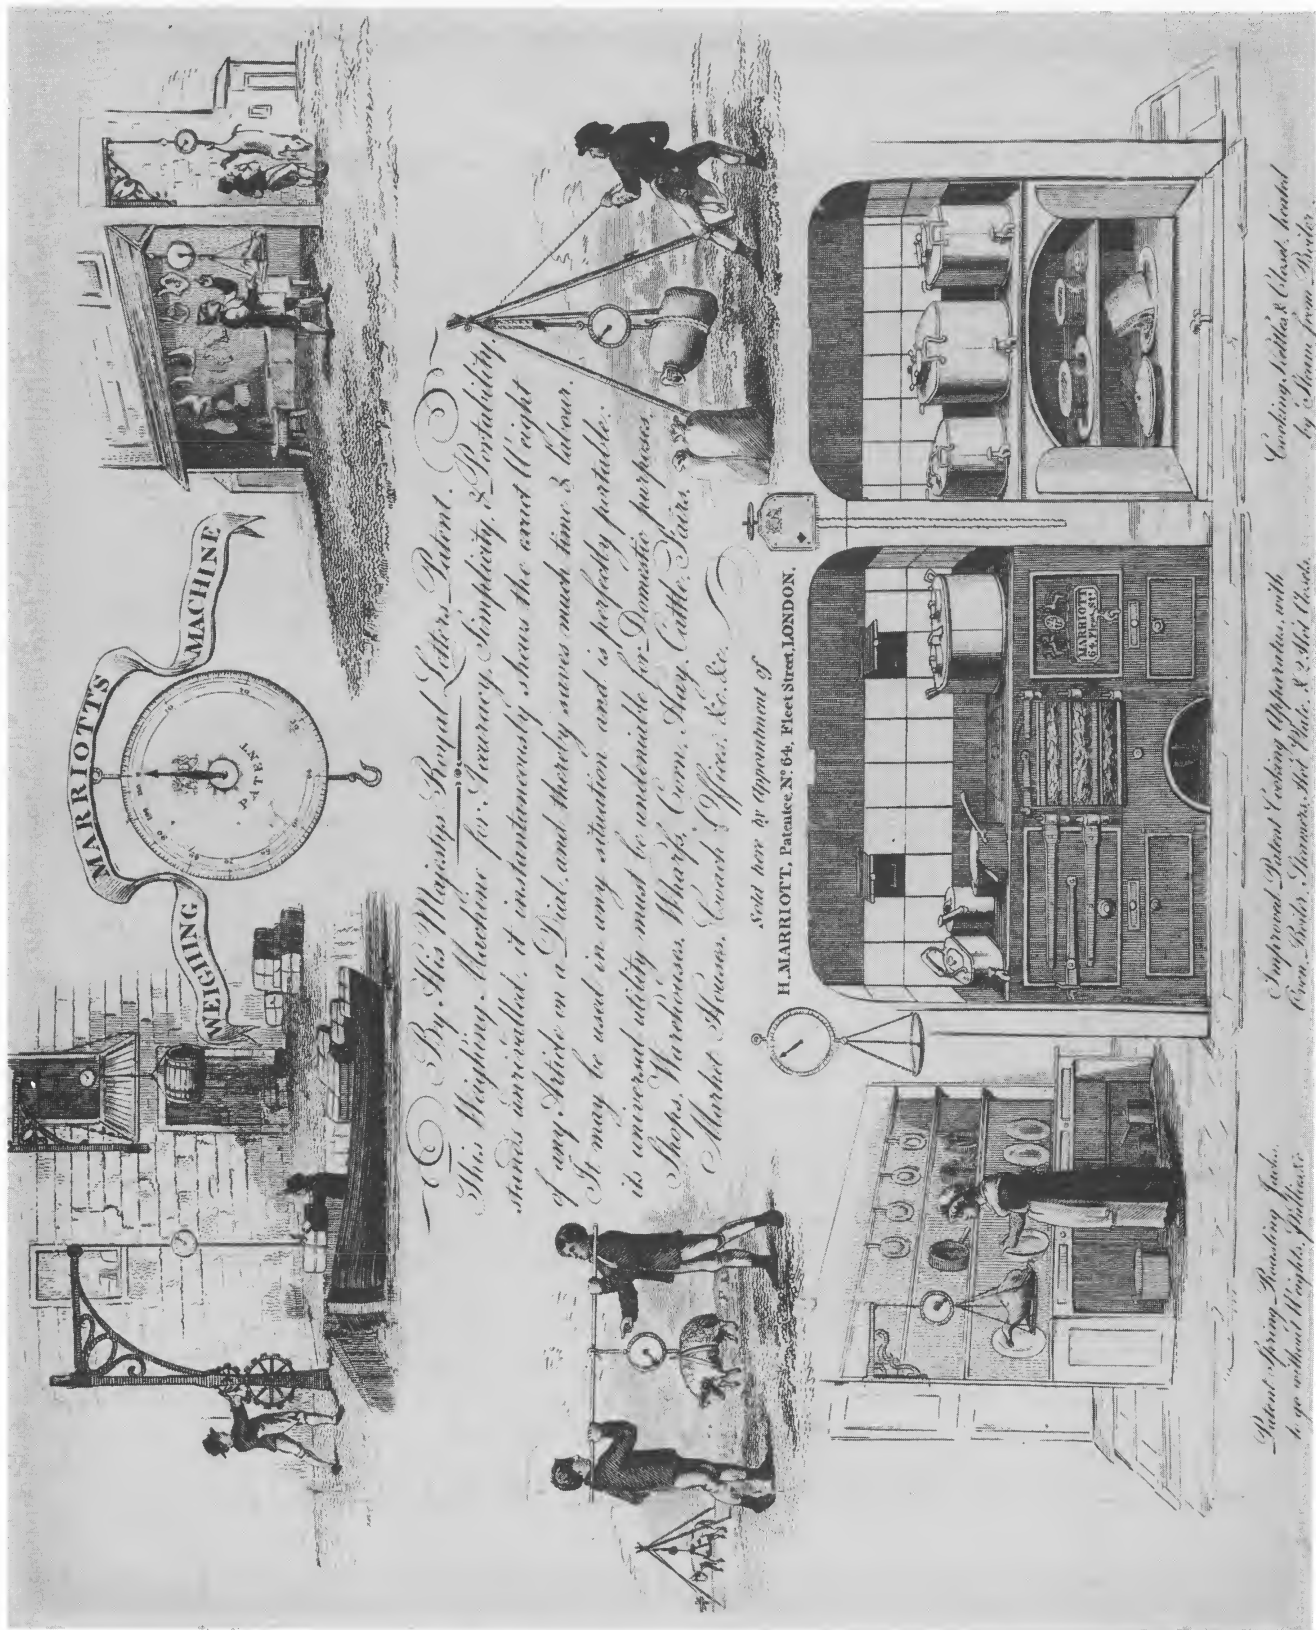 MARRIOTTS
WEIGHING MACHINE
PATENT
By His Majestys Royal Letters Patent.
This Weighing Machine for Accuracy, Simplicity, & Portability,
stands unrivalled, it instantaneously shews the exact Weight
of any Article on a Dial, and thereby saves much time & labour.
It may be used in any situation and is perfectly portable:
its universal utility must be undeniable for Domestic purposes
Shops, Warehouses, Wharfs, Corn, Hay, Cattle, Fairs,
Market Houses, Coach Offices, &c. &c.
Sold here by Appointment of
H. MARRIOTT, Patentee, No. 64, Fleet Street, LONDON.
MARRIOTT
64 Fleet St
Patent Spring Roasting Jack,
to go without Weights,
Improved Patent Cooking Apparatus, with
Oven, Boiler, Steamers, Hot Plate, &
Cooking Kettles & Closet, heated
by Steam from Boiler